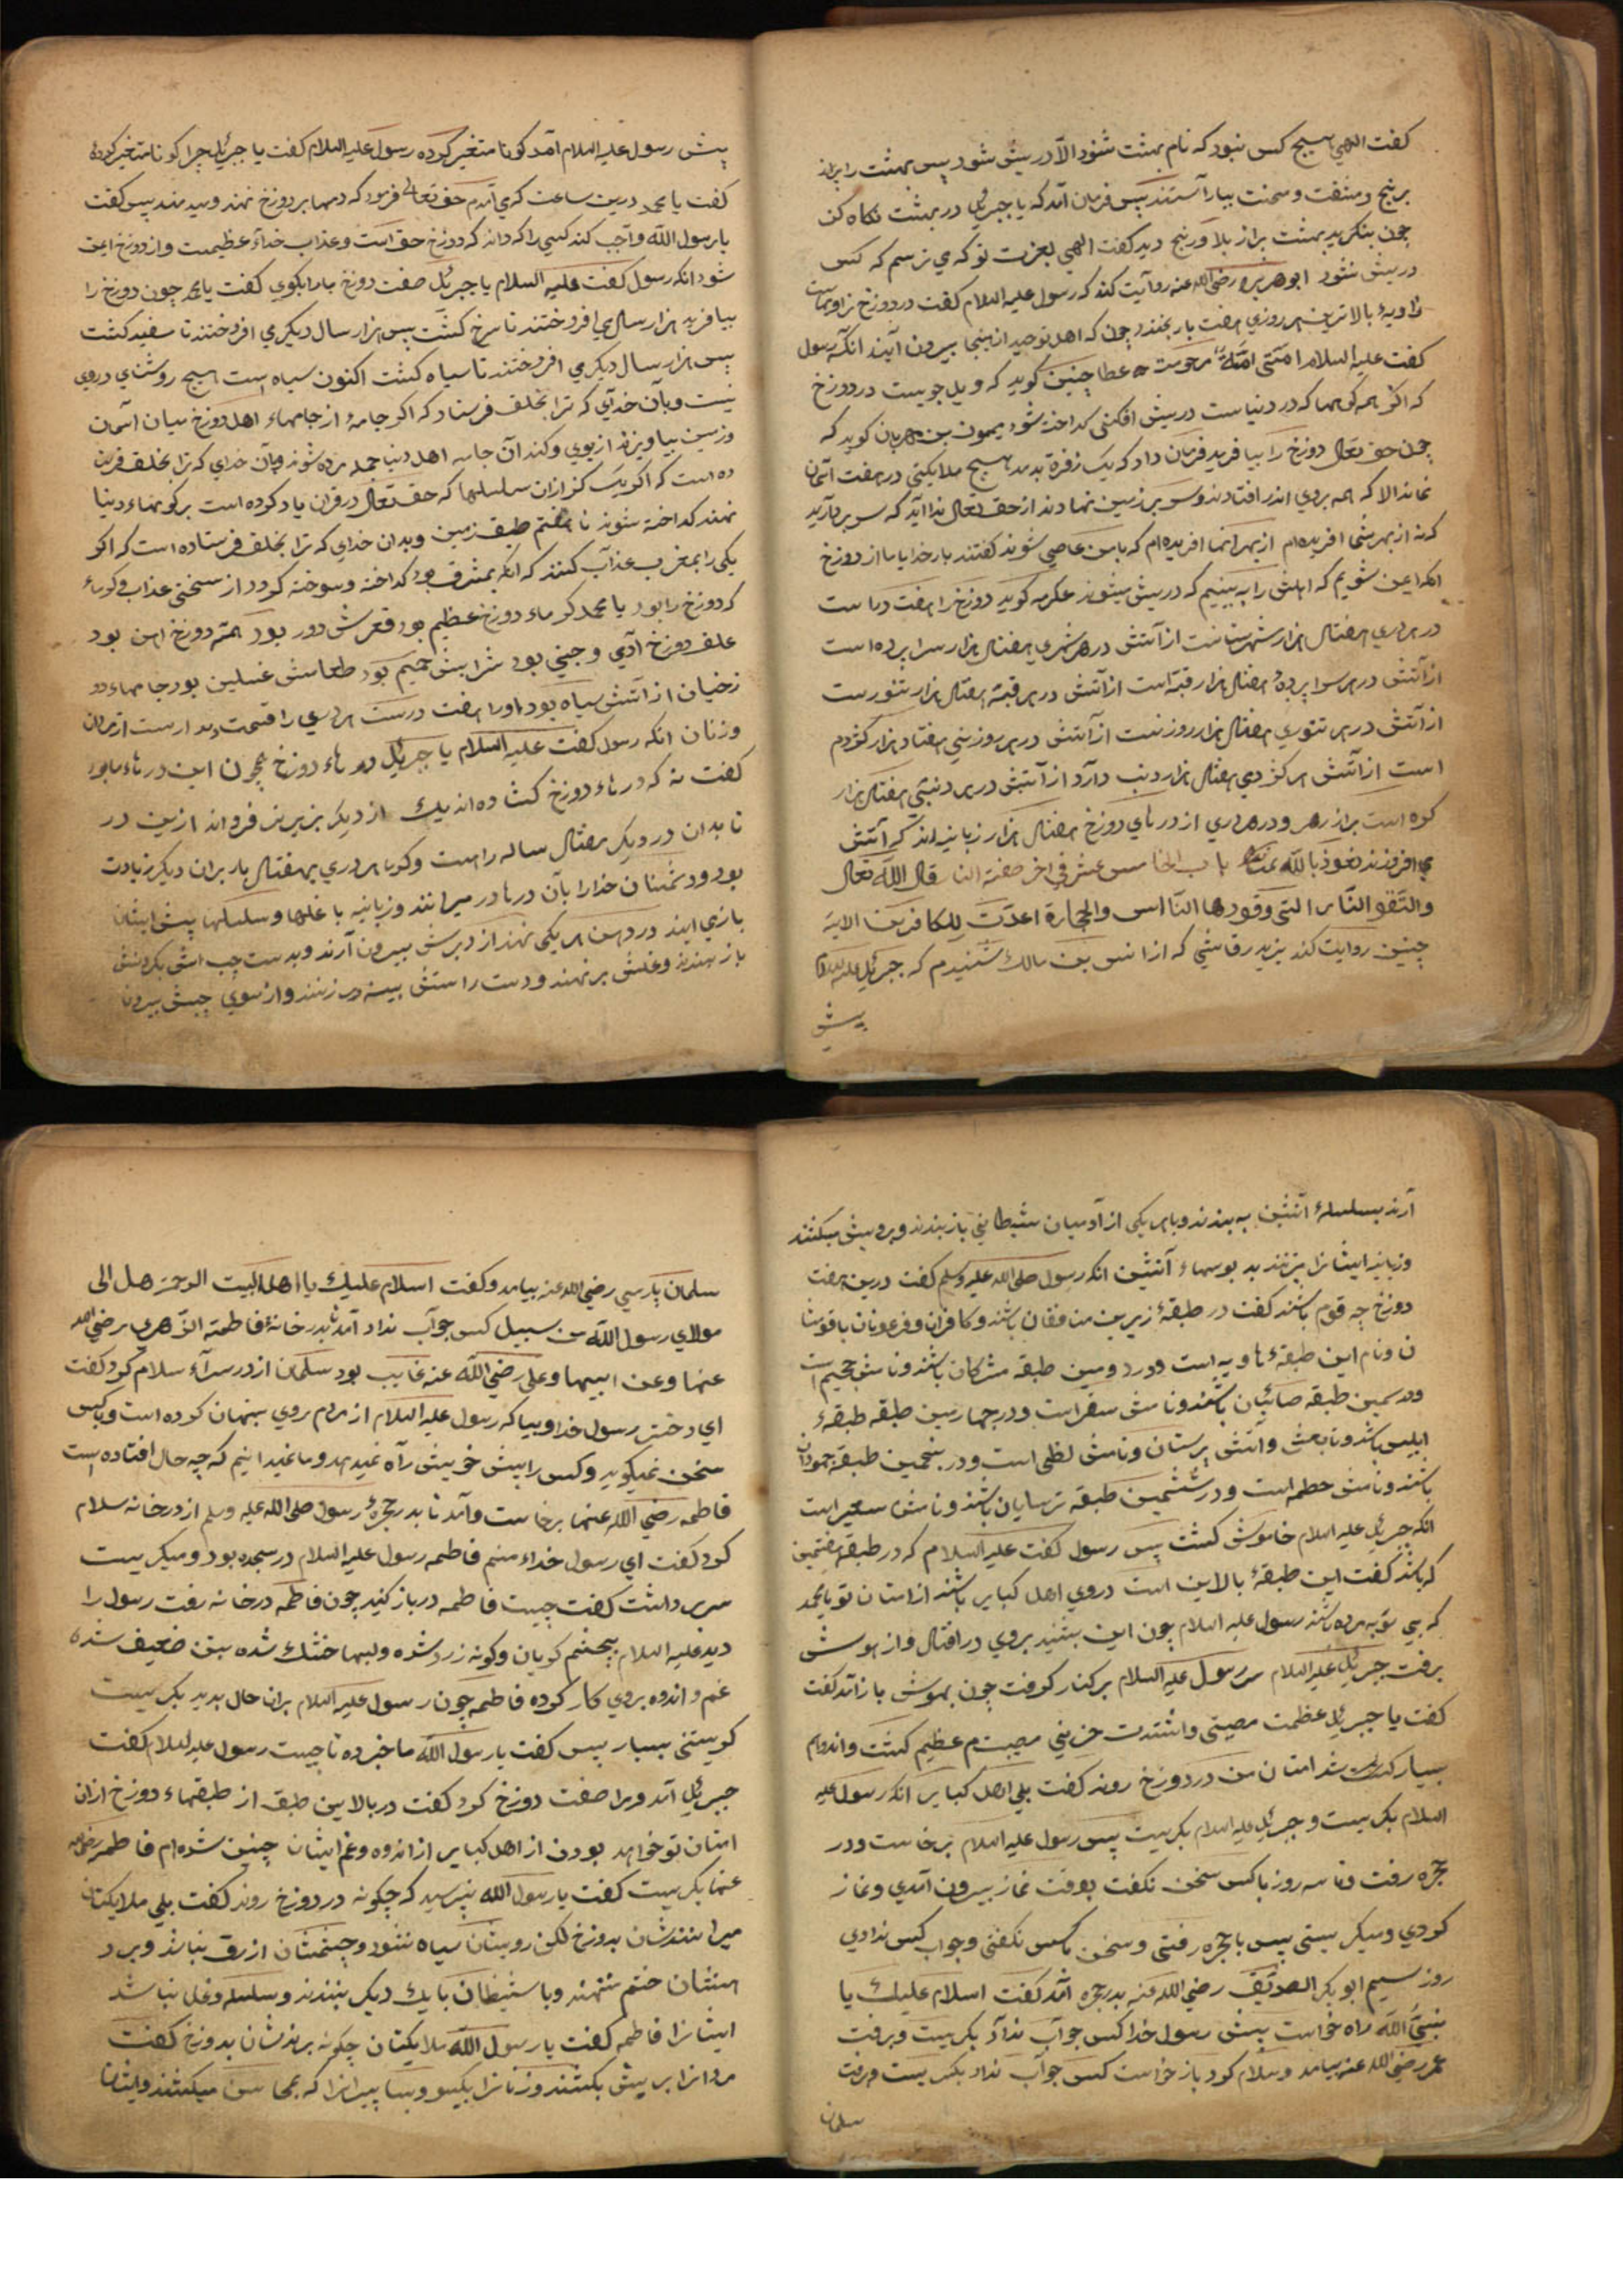 کفت الهی هیچ کس نبود که نام بهشت شنود الا در ییش شود پس بهشت را براز
برنج و مشقت و محنت بیاراستند پس فرمان آمد که یا جبرئیل در بهشت نکاه کن
چون بنکرید بهشت براز بلا و رنج دید کفت الهی بعزت تو که می ترسم که کس
درییش نشود ابوهریره رضی الله عنه روایت کند که رسول علیه السلام کفت در دوزخ زاویهاست
زاویهٔ بالاترین هر روزی هفت بار بخندد چون که اهل توحید ازینجا بیرون آیند انکه رسول
کفت علیه السلام امتی امة مرحومة عطا چنین کوید که ویل جویست در دوزخ
که اکر همه کوهها که در دنیاست درییش افکنی کداخته شود میمون بن مهران کوید که
چون حق تعالی دوزخ را بیافرید فرمان داد که یک زفرة بدمد هیچ ملایکتی در هفت آسمان
نماند الا که همه بروی اندر افتادند و سر بر زمین نهادند از حق تعالی ندا آید که سر بردارید
که نه از بهر شما افریده‌ام از بهر آنها افریده‌ام که با من عاصی شوند کفتند بار خدایا ما از دوزخ
آنکه ایمن شویم که اهلش را به بینیم که درییش میشوند عکرمه کوید دوزخ را هفت در است
در هر دری هفتاد هزار شهرستانست از آتش در هر شهری هفتاد هزار سراپرده است
از آتش در هر سراپردهٔ هفتاد هزار قبّه است از آتش در هر قبّه هفتاد هزار تنورست
از آتش در هر تنوری هفتاد هزار روزنست از آتش در هر روزنی هفتاد هزار کژدم
است از آتش هر کژدمی هفتاد هزار دنب دارد از آتش در هر دنبی هفتاد هزار
کوه است براز زهر و در هر دری از درهای دوزخ هفتاد هزار زبانیه‌اند که آتش
می افروزند نعوذ بالله منها باب الخامس عشر فی اخر صفة النار قال الله تعالی
واتقو النار التی وقودها النّاس والحجارة اعدّت للکافرین الایه
چنین روایت کند یزید رقاشی که از انس بن مالک شنیدم که جبرئیل علیه السلام
پیش
پیش رسول علیه السلام آمد کونا متغیر کرده رسول علیه السلام کفت یا جبرئیل چرا کونا متغیر کردهٔ
کفت یا محمد درین ساعت که می آمدم حق تعالی فرمود که دمها بر دوزخ نهند و میدمند پس کفت
یا رسول الله واجب کند کسی را که داند که دوزخ حق است و عذاب خدای عظیمست و از دوزخ ایمن
شود انکه رسول کفت علیه السلام یا جبرئیل صفت دوزخ ما را بکوی کفت یا محمد چون دوزخ را
بیافرید هزار سال می افروختند تا سرخ کشت پس هزار سال دیکر می افروختند تا سفید کشت
پس هزار سال دیکر می افروختند تا سیاه کشت اکنون سیاه است هیچ روشنای دروی
نیست و بآن خدای که ترا بخلق فرستاد که اکر جامهٔ از جامهاء اهل دوزخ میان آسمان
و زمین بیاویزند از بوی و کند آن جامه اهل دنیا جمله مرده شوند و بآن خدای که ترا بخلق فرستا
ده است که اکر یک کز ازان سلسلها که حق تعالی در قرآن یاد کرده است بر کوهها‌ء دنیا
نهند کداخته شوند تا هفتم طبق زمین و بدان خدای که ترا بخلق فرستاده است که اکر
یکی را بمغرب عذاب کنند که انکه بمشرق بود کداخته و سوخته کردد از سختی عذاب و کرماء
که دوزخ را بود یا محمد کرماء دوزخ عظیم بود قعرش دور بود همه دوزخ اهن بود
علف دوزخ آدمی و جنّی بود شرابش حمیم بود طعامش غسلین بود جامهاء دو
زخیان از آتش سیاه بود او را هفت درست هر دری را قسمت پدیدارست از مردان
و زنان انکه رسول کفت علیه السلام یا جبرئیل درهاء دوزخ همچون این درهاء ما بود
کفت نه که درهاء دوزخ کشاده‌اند یک از دیکر بزیر بزیر فرو اند ازین در
تا بدان در دیکر هفتاد ساله راه است و کرماء هر دری بهفتاد بار بران دیکر زیادت
بود و دشمنان خدا را بآن درها در میرانند و زبانیه با غلها و سلسلها پیش ایشان
بازمی ایند در دهن هر یکی نهند از دبرش بیرون آرند و بدست چب اش بکردنش
باز بندند و غلش برنهند و دست راستش بسینه در زنند و از سوی چبش بیرون
آرند بسلسلهٔ آتشین ببندند و با هر یکی از آدمیان شیطانی باز بندند و برویش میکشند
و زبانیه ایشانرا میزنند بدبوسهاء آتشین انکه رسول صلی الله علیه وسلم کفت درین هفت
دوزخ چه قوم باشند کفت در طبقهٔ زیرین منافقان باشند و کافران و فرعونان با قومشا
ن و نام این طبقهٔ هاویه است و در دومین طبقه مشرکان باشند و نامش جحیم است
و در سیمین طبقه صابئیان باشند و نامش سقر است و در چهارمین طبقه طبقهٔ
ابلیس باشد و تابعش و آتش پرستان و نامش لظی است و در پنجمین طبقه جهودان
باشند و نامش حطمه است و در ششمین طبقه ترسایان باشند و نامش سعیر است
انکه جبرئیل علیه السلام خاموش کشت پس رسول کفت علیه السلام که در طبقهٔ هفتمین
که باشد کفت این طبقهٔ بالاین است در وی اهل کبایر باشند از امتان تو یا محمد
که بی توبه مرده باشند رسول علیه السلام چون این بشنید بروی در افتاد و از هوش
برفت جبرئیل علیه السلام سر رسول علیه السلام بر کنار کرفت چون بهوش باز آمد کفت
کفت یا جبرئیل عظمت مصیبتی و اشتدت حزنی مصیبتم عظیم کشت و اندوهم
بسیار کردد امتان من در دوزخ روند کفت بلی اهل کبایر انکه رسول علیه
السلام بکریست و جبرئیل علیه السلام بکریست پس رسول علیه السلام برخاست و در
حجره رفت و تا سه روز با کس سخن نکفت بوقت نماز بیرون آمدی و نماز
کردی و میکریستی پس با حجره رفتی و سخن با کس نکفتی و جواب کس ندادی
روز سیم ابو بکر الصدّیق رضی الله عنه بدر حجره آمد کفت السلام علیک یا
نبیّ الله راه خواست پیش رسول خدا کس جواب نداد بکریست و برفت
عمر رضی الله عنه بیامد و سلام کرد باز خواست کس جواب نداد بکریست و برفت
سلمان
سلمان پارسی رضی الله عنه بیامد و کفت السلام علیک یا اهل البیت الرحمة هل الی
مولای رسول الله من سبیل کس جواب نداد آمد تا بدر خانهٔ فاطمة الزّهری رضی الله
عنها و عن ابیها و علی رضی الله عنه غایب بود سلمان از در سرآء سلام کرد کفت
ای دختر رسول خدا و بیا که رسول علیه السلام از مردم روی پنهان کرده است و با کس
سخن نمیکوید و کس را پیش خویش راه نمیدهد و ما نمیدانیم که چه حال افتاده است
فاطمه رضی الله عنها برخاست و آمد تا بدر حجرهٔ رسول صلی الله علیه وسلم از در خانه سلام
کرد کفت ای رسول خداء منم فاطمه رسول علیه السلام در سجده بود و میکریست
سر برداشت کفت چیست فاطمه در باز کنید چون فاطمه در خانه رفت رسول را
دید علیه السلام بچشم کریان و کونه زرد شده و لبها خشک شده بتن ضعیف شده
غم و اندوه بروی کار کرده فاطمه چون رسول علیه السلام بران حال بدید بکریست
کریستنی بسیار پس کفت یا رسول الله ما خبر ده تا چیست رسول علیه السلام کفت
جبرئیل آمد و مرا صفت دوزخ کرد کفت در بالاین طبق از طبقهاء دوزخ ازان
امتان تو خواهد بودن از اهل کبایر از اندوه و غم ایشان چنین شده‌ام فاطمه رضی الله
عنها بکریست کفت یا رسول الله نپرسید که چکونه در دوزخ روند کفت بلی ملایکتان
میرانندشان بدوزخ لکن رویشان سیاه نشود و چشمشان ازرق نباشد و بر د
هنشان ختم ننهند و با شیطان با یک دیکر نبندند و سلسله و غل نباشد
ایشانرا فاطمه کفت یا رسول الله ملایکتان چکونه برندشان بدوزخ کفت
مردانرا بریش بکشند و زنانرا بکیسو و بسا پیرانرا که بمحاسن میکشند و ایشان